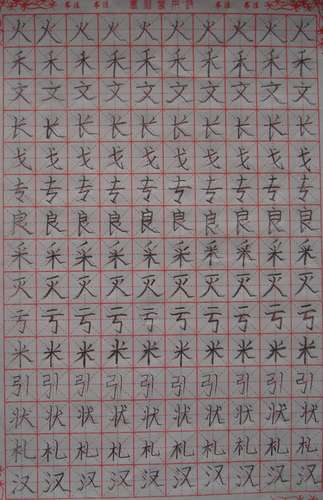 书法 书法 书法 书法
火 火 火 火 火 火 火 火 火 火
禾 禾 禾 禾 禾 禾 禾 禾 禾 禾
文 文 文 文 文 文 文 文 文 文
长 长 长 长 长 长 长 长 长 长
戈 戈 戈 戈 戈 戈 戈 戈 戈 戈
专 专 专 专 专 专 专 专 专 专
良 良 良 良 良 良 良 良 良 良
采 采 采 采 采 采 采 采 采 采
灭 灭 灭 灭 灭 灭 灭 灭 灭 灭
亏 亏 亏 亏 亏 亏 亏 亏 亏 亏
米 米 米 米 米 米 米 米 米 米
引 引 引 引 引 引 引 引 引 引
状 状 状 状 状 状 状 状 状 状
札 札 札 札 札 札 札 札 札 札
汉 汉 汉 汉 汉 汉 汉 汉 汉 汉